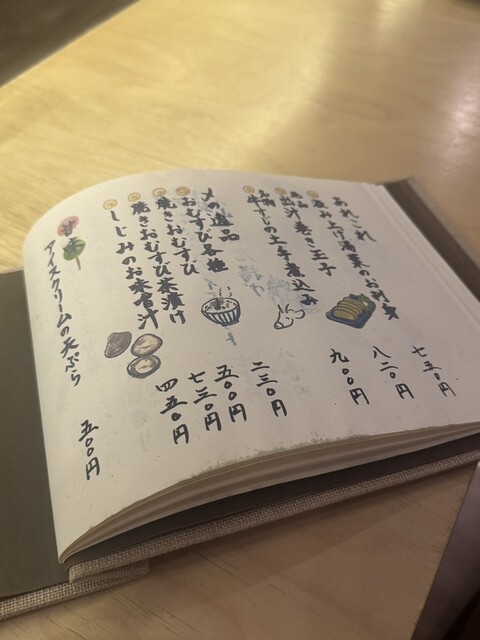 あれこれ
汲み上げ湯葉のお刺身 七五〇円
出汁巻き玉子 八二〇円
名物 牛すじの土手煮込み 九〇〇円
〆の逸品
おむすび各種 二三〇円
焼きおむすび 五〇〇円
焼きおむすび茶漬け 七三〇円
しじみのお味噌汁 四五〇円
甘味
アイスクリームの天ぷら 五〇〇円